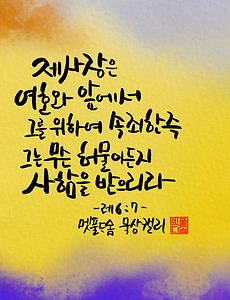 제사장은
여호와 앞에서
그를 위하여 속죄한즉
그는 무슨 허물이든지
사함을 받으리라
-레6:7-
멋풀다솜 묵상캘리